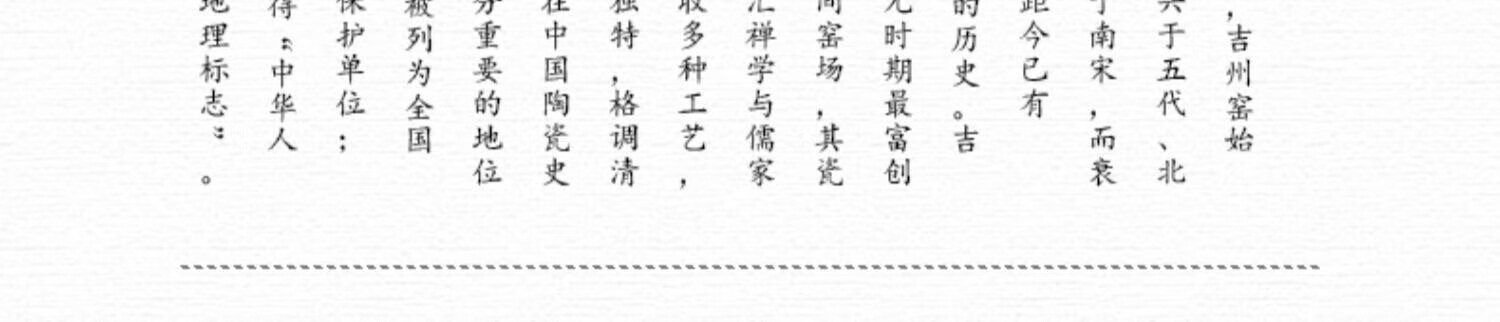 ，吉州窑始
于五代、北
南宋，而衰
距今已有
的历史。吉
时期最富创
窑场，其瓷
汇禅学与儒家
取多种工艺，
独特，格调清
在中国陶瓷史
重要的地位
被列为全国
保护单位；
得“中华人
地理标志”。